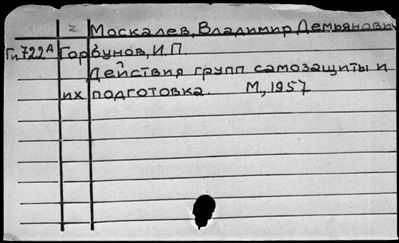 Москалев, Владимир Демьянович
Гп722А Горбунов, И.П.
Действия групп самозащиты и
их подготовка. М., 1957